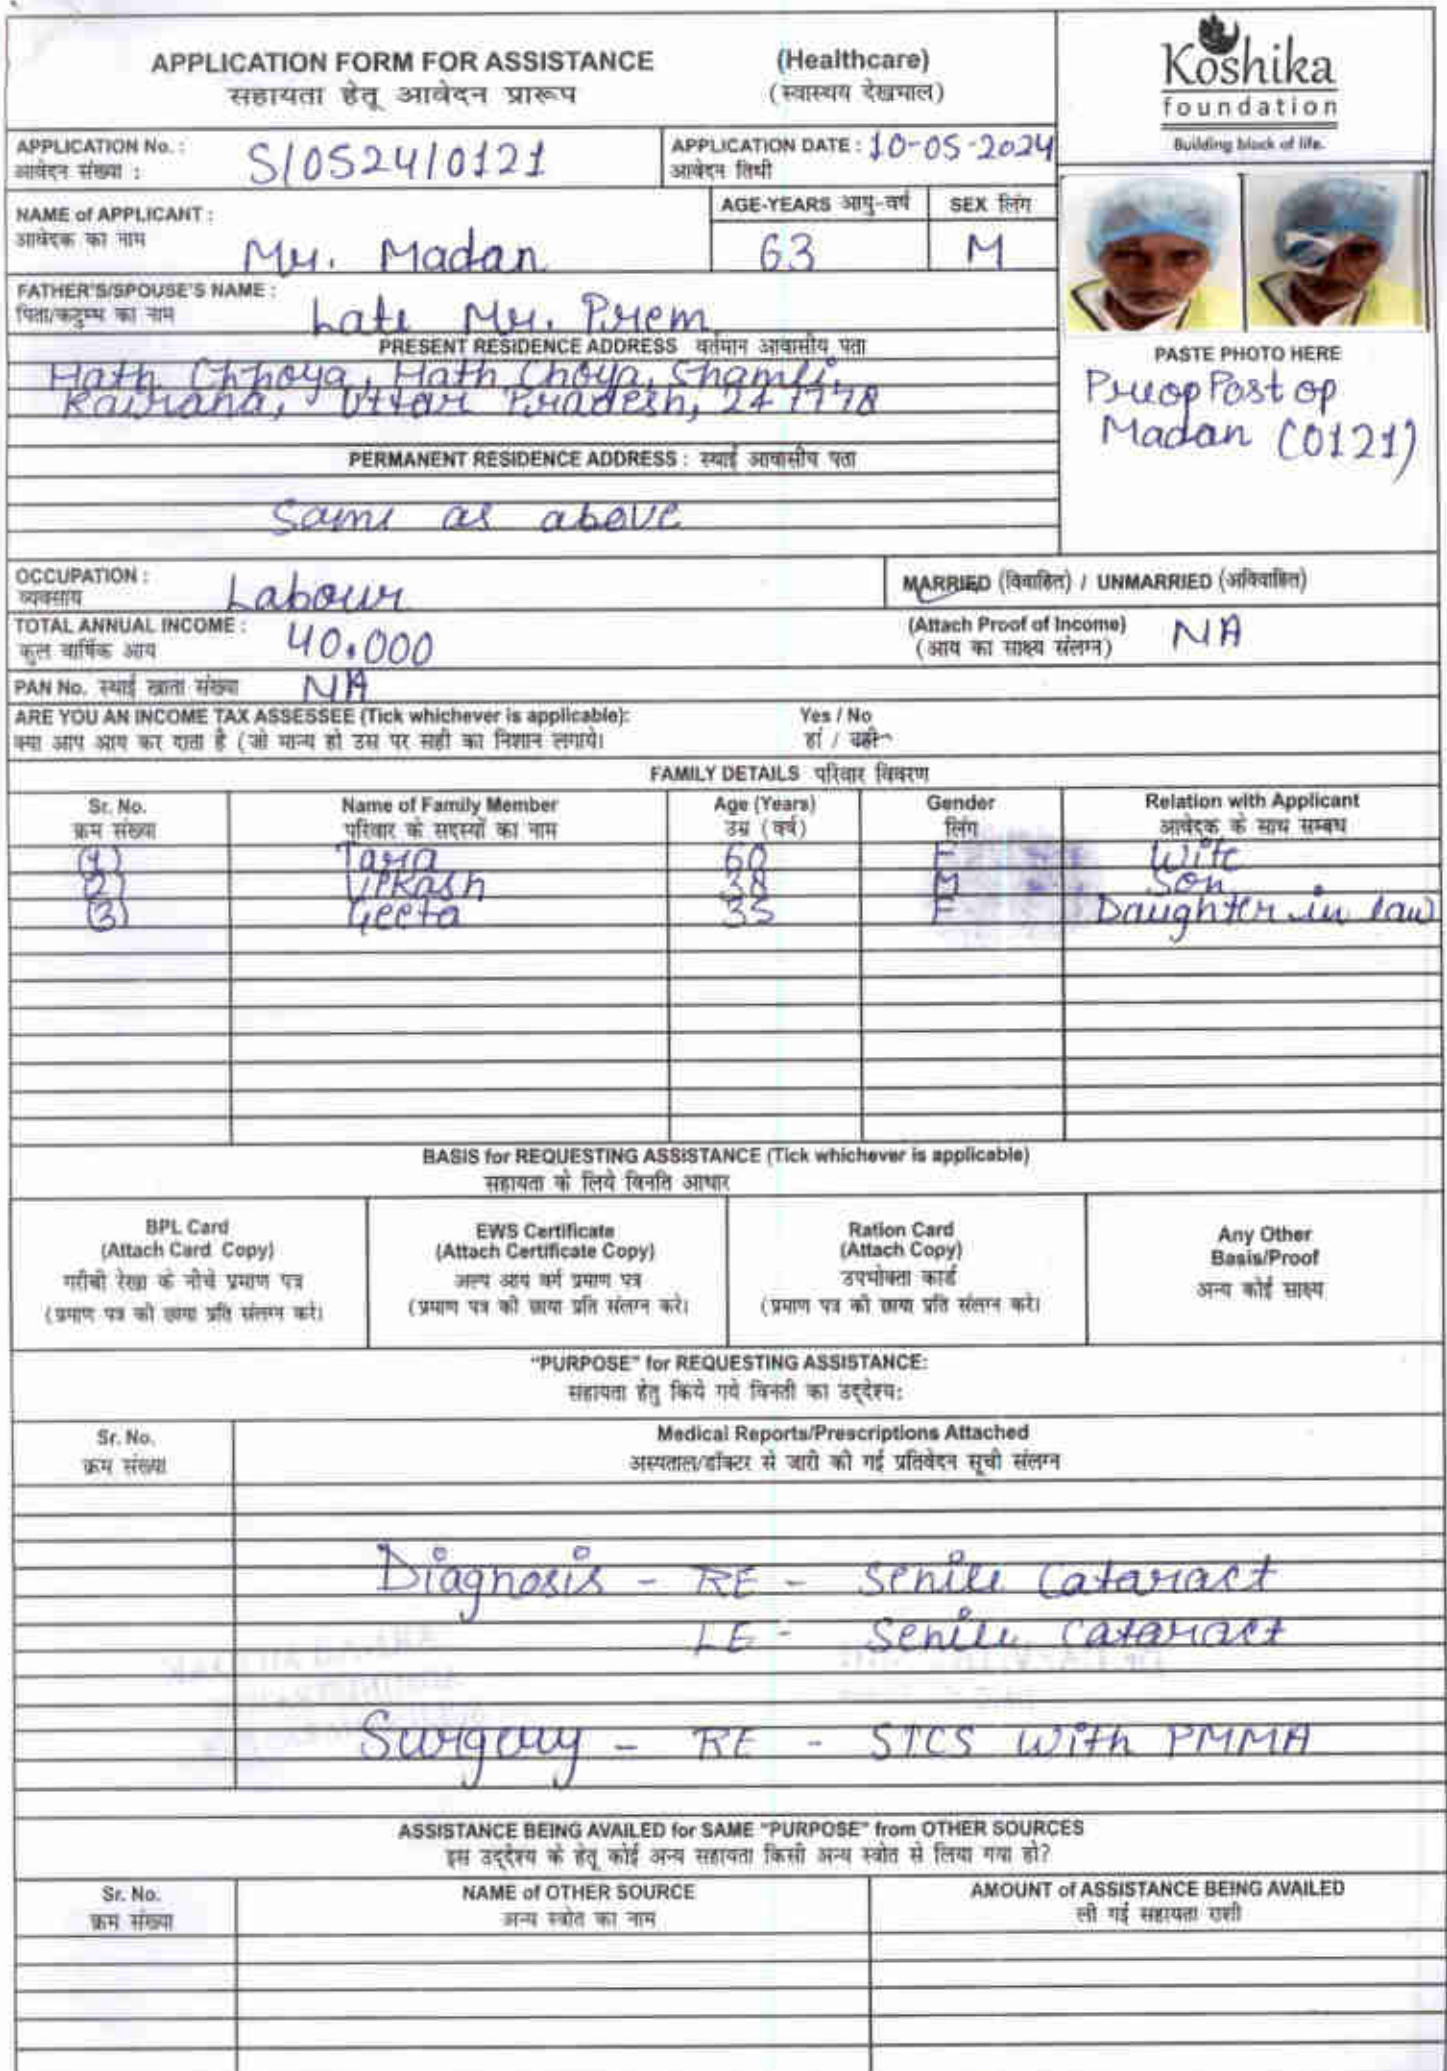 APPLICATION FORM FOR ASSISTANCE (Healthcare)
सहायता हेतू आवेदन प्रारूप (स्वास्थय देखभाल)
Koshika
foundation
Building block of life.
APPLICATION No. : S/0524/0121 APPLICATION DATE : 10-05-2024
आवेदन संख्या : आवेदन तिथी
NAME of APPLICANT : AGE-YEARS आयु-वर्ष SEX लिंग
आवेदक का नाम Mr. Madan 63 M
FATHER'S/SPOUSE'S NAME :
पिता/कटुम्ब का नाम Late Mr. Prem
PRESENT RESIDENCE ADDRESS वर्तमान आवासीय पता
Hath Chhoya, Hath Choya, Shamli,
Kairana, Uttar Pradesh, 247778
PASTE PHOTO HERE
Preop Post op
Madan (0121)
PERMANENT RESIDENCE ADDRESS : स्थाई आवासीय पता
Same as above
OCCUPATION : MARRIED (विवाहित) / UNMARRIED (अविवाहित)
व्यवसाय Labour
TOTAL ANNUAL INCOME : 40.000 (Attach Proof of Income) NA
कुल वार्षिक आय (आय का साक्ष्य संलग्न)
PAN No. स्थाई खाता संख्या NA
ARE YOU AN INCOME TAX ASSESSEE (Tick whichever is applicable): Yes / No
क्या आप आय कर दाता है (जो मान्य हो उस पर सही का निशान लगाये। हां / नहीं
FAMILY DETAILS परिवार विवरण
Sr. No. Name of Family Member Age (Years) Gender Relation with Applicant
क्रम संख्या परिवार के सदस्यों का नाम उम्र (वर्ष) लिंग आवेदक के साथ सम्बध
(1) Tara 60 F Wife
(2) Vikash 38 M Son
(3) Geeta 35 F Daughter in law
BASIS for REQUESTING ASSISTANCE (Tick whichever is applicable)
सहायता के लिये विनति आधार
BPL Card
(Attach Card Copy)
गरीबी रेखा के नीचे प्रमाण पत्र
(प्रमाण पत्र की छाया प्रति संलग्न करे।
EWS Certificate
(Attach Certificate Copy)
अल्प आय वर्ग प्रमाण पत्र
(प्रमाण पत्र की छाया प्रति संलग्न करे।
Ration Card
(Attach Copy)
उपभोक्ता कार्ड
(प्रमाण पत्र की छाया प्रति संलग्न करे।
Any Other
Basis/Proof
अन्य कोई साक्ष्य
"PURPOSE" for REQUESTING ASSISTANCE:
सहायता हेतु किये गये विनती का उद्देश्य:
Sr. No. Medical Reports/Prescriptions Attached
क्रम संख्या अस्पताल/डॉक्टर से जारी की गई प्रतिवेदन सूची संलग्न
Diagnosis - RE - Senile Cataract
LE - Senile Cataract
Surgery - RE - SICS with PMMA
ASSISTANCE BEING AVAILED for SAME "PURPOSE" from OTHER SOURCES
इस उद्देश्य के हेतू कोई अन्य सहायता किसी अन्य स्त्रोत से लिया गया हो?
Sr. No. NAME of OTHER SOURCE AMOUNT of ASSISTANCE BEING AVAILED
क्रम संख्या अन्य स्त्रोत का नाम ली गई सहायता राशी